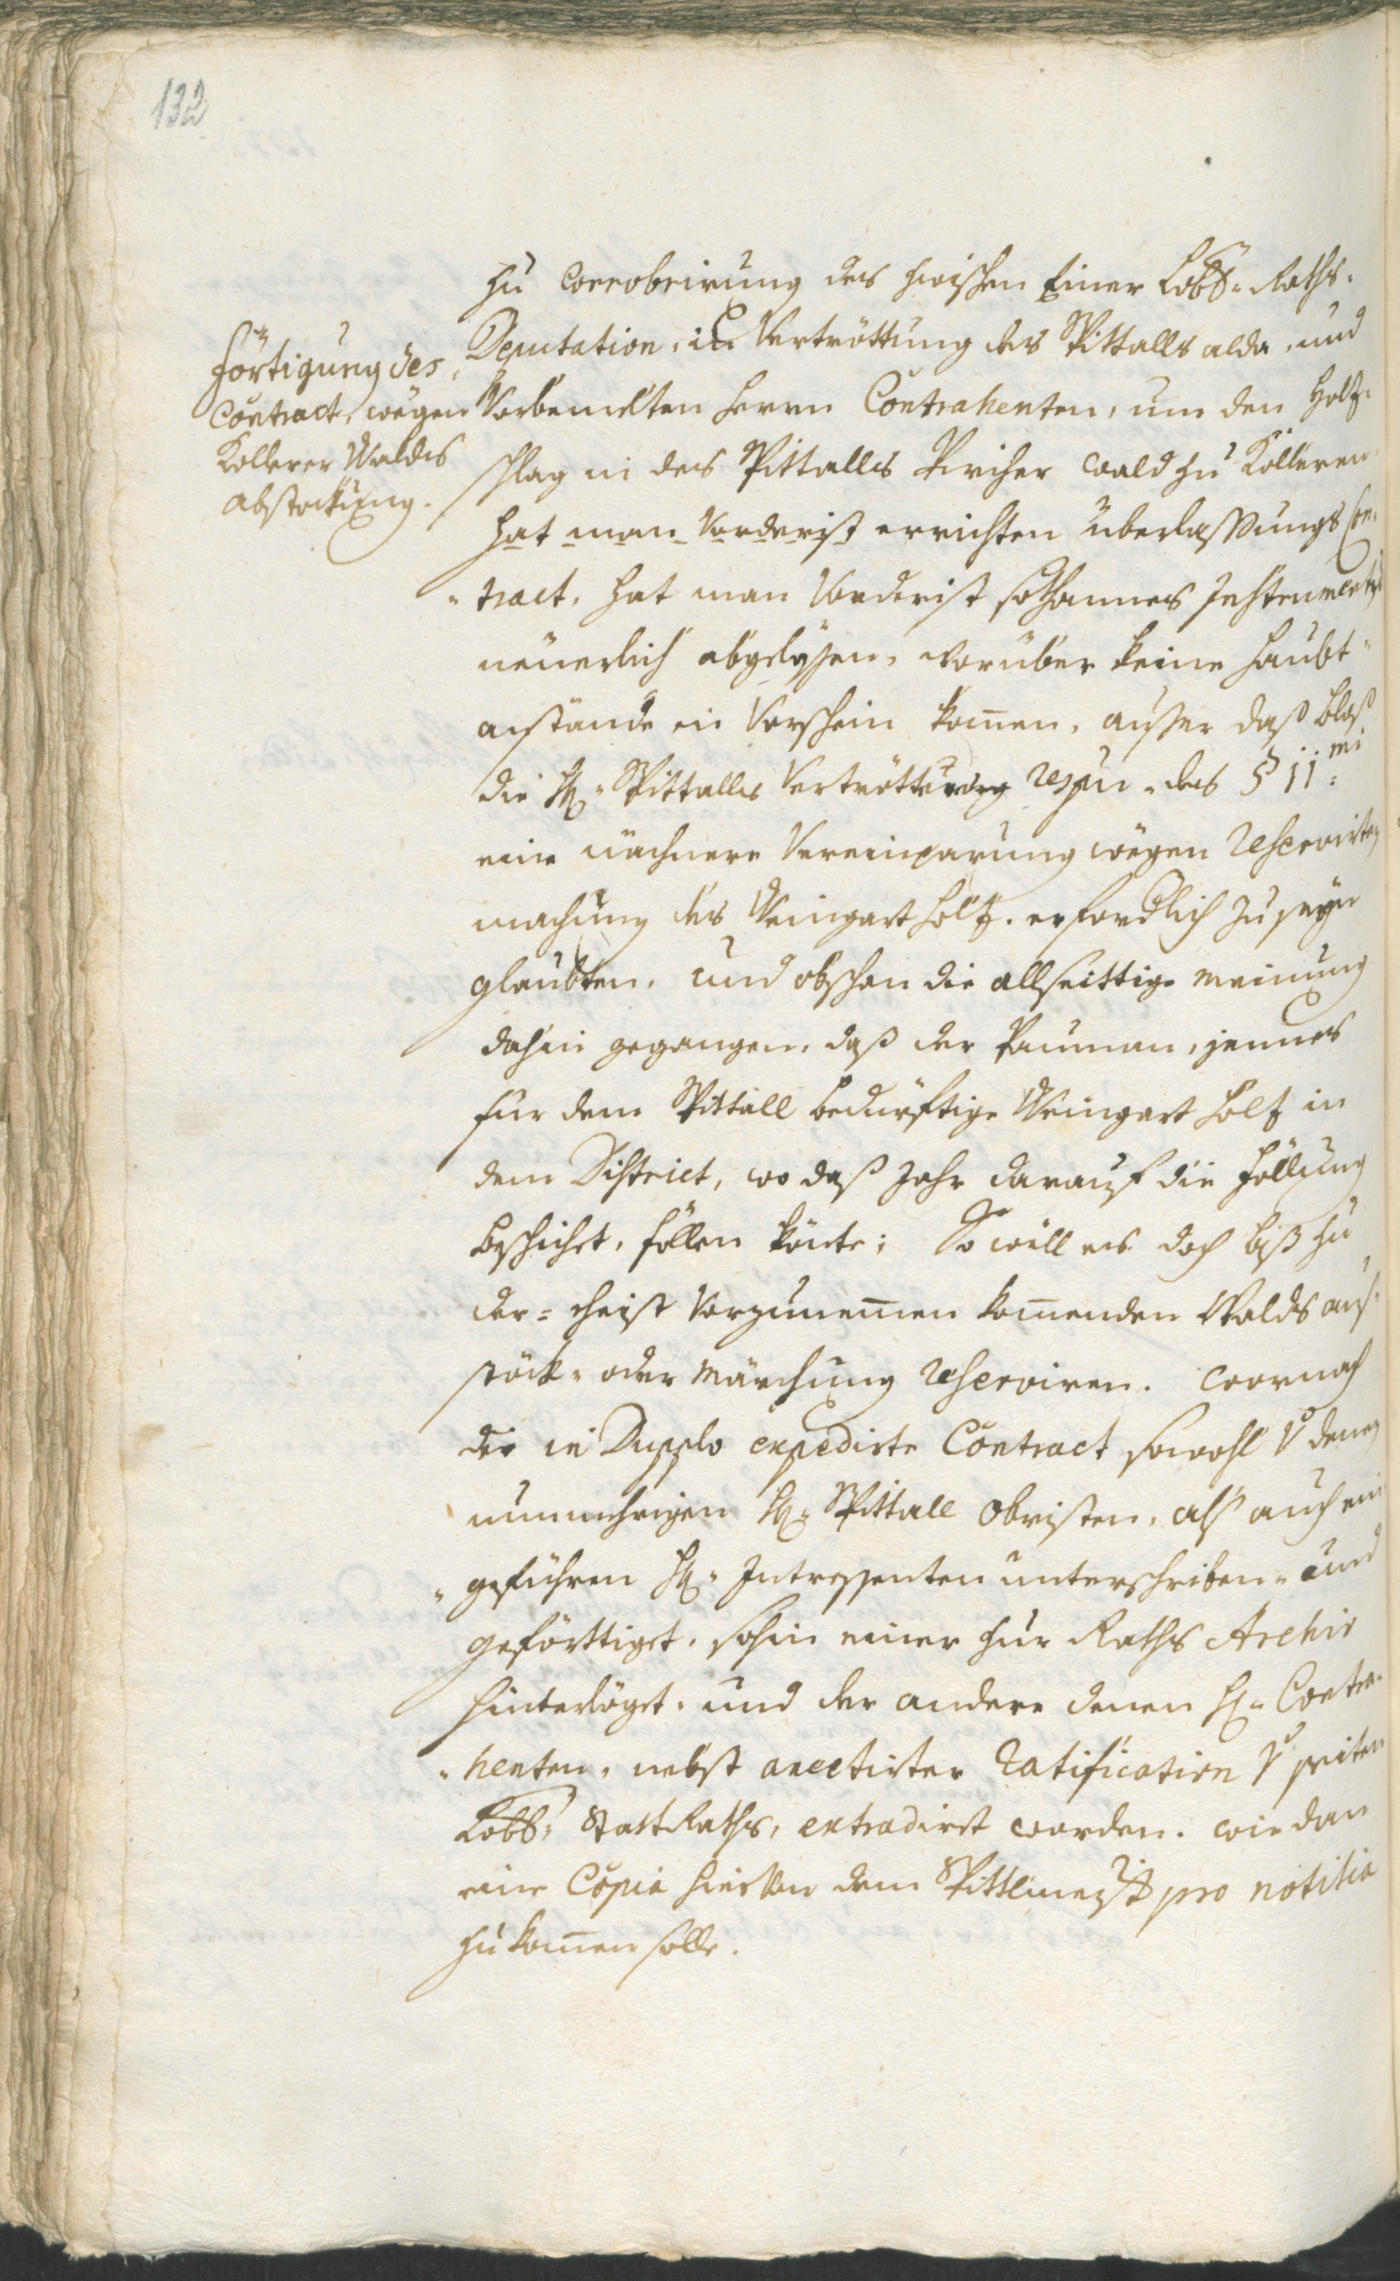 132
Förtigung des
Contract, wegen
Kollerer Waldes
abstockung.
Zu Corrobrirung des zwischen Einer Löbl. Raths-
Deputation, in Vertröttung des Spittalls alda, und
Vorbemelten Herrn Contrahenten, um den Holz-
schlag in des Spittalls Kircher Wald zu Kolleren
hat man Vorderist errichten überlassungs Con-
tract, hat man Vorderist sothannes Instrument
neuerlich abgelesen, worüber keine Haubt-
anstände in Vorschein komen, ausser daß bloß
die H. Spittalls Vertröttung respectu des § 11mi
eine nächere Vereinparung wegen Reservirten
machung des Weingart holz, erfordlich zu seyn
glaubten, und obschon die allseittige meinung
dahin gegangen, daß der Pauman, jennes
für dem Spittall bedürftige Weingart holz in
dem District, wo daß Jahr darauf die föllung
beschichet, föllen könte; So will es doch biß zu
der- ehist Vorzunemen komenden Walds auß-
stöck- oder märchung reserviren. Wornach
die in Dupplo expedirte Contract sowohl V denen
nunmehrigen H. Spittall Obristen, als auch ein-
geführen H. Intressenten unterschriben- und
geförttiget, sohin einer zur Raths Archiv
hinterlöget, und der andere denen H. Contra-
henten, nebst anectirter Ratification V seiten
Löbl. Statt Raths, extradirt worden. Wie dan
eine Copia hievon dem Spittlmeister pro notitia
zukomen solle.